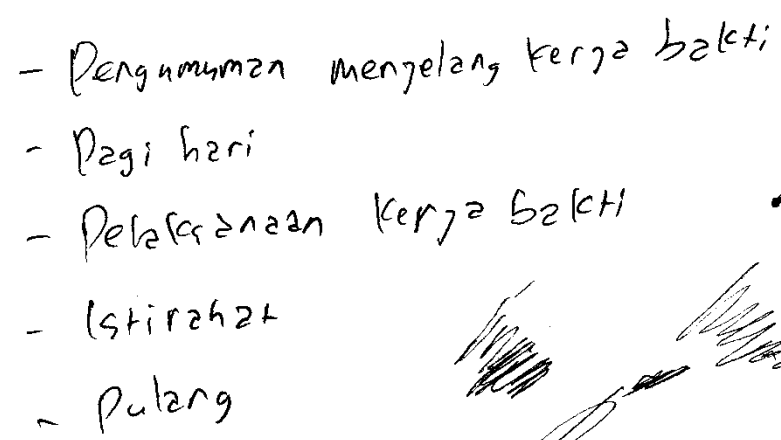 - Pengumuman menjelang kerja bakti
- Pagi hari
- Pelaksanaan kerja bakti
- Istirahat
- Pulang